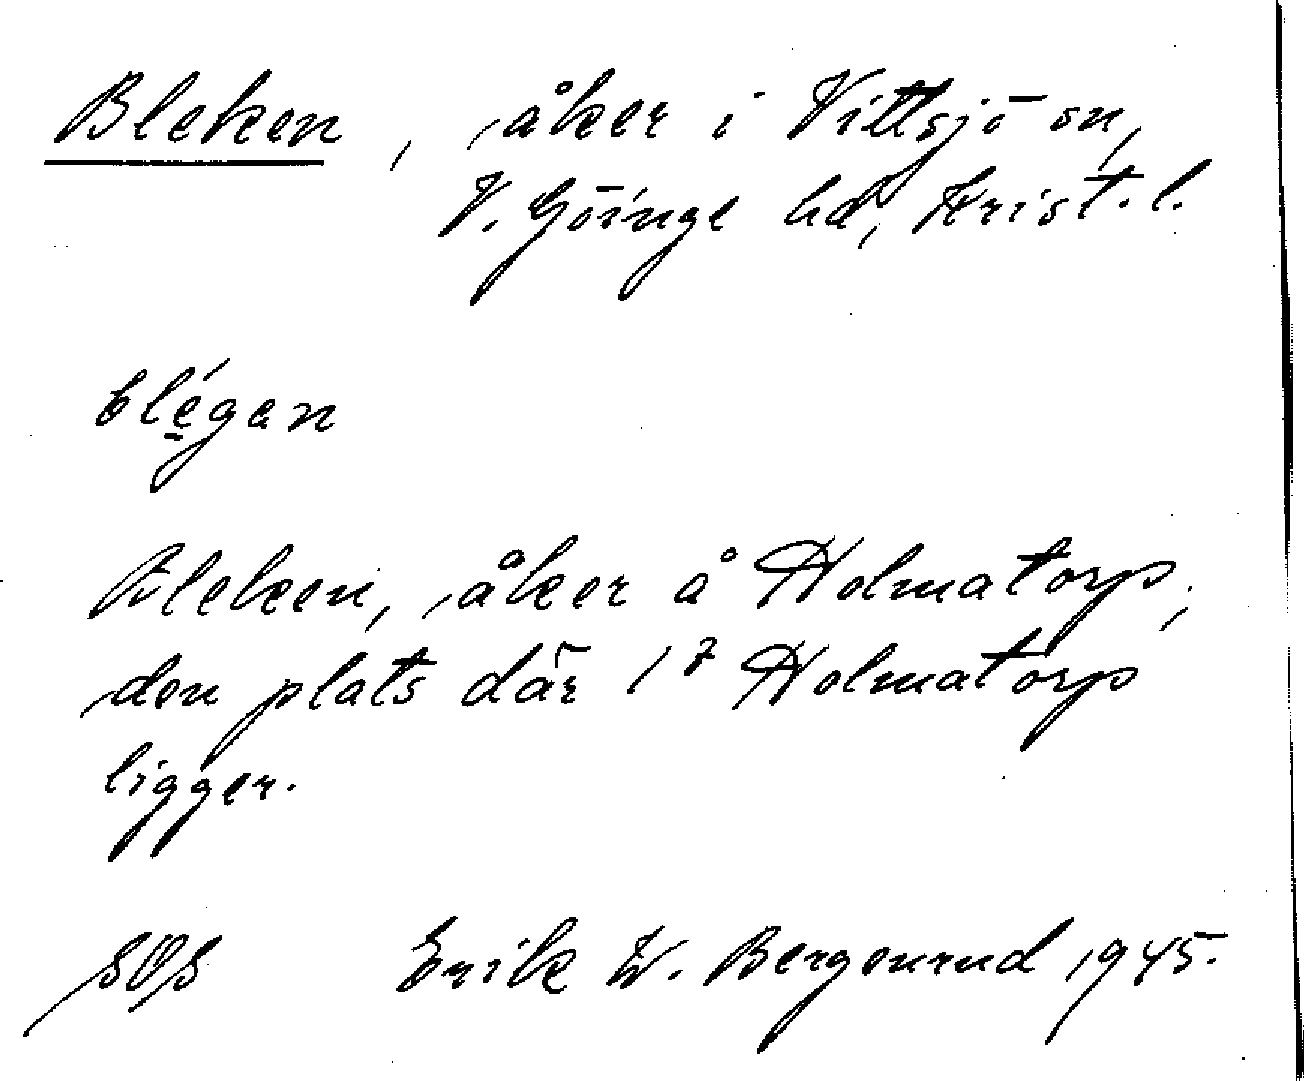 Bleken, åker i Vittsjö sn,
V. Göinge hd, Krist. l.
blé̱gan
Bleken, åker å Holmatorp,
den plats där 1⁷ Holmatorp
ligger.
SOS Erik W. Bergenrud 1945.